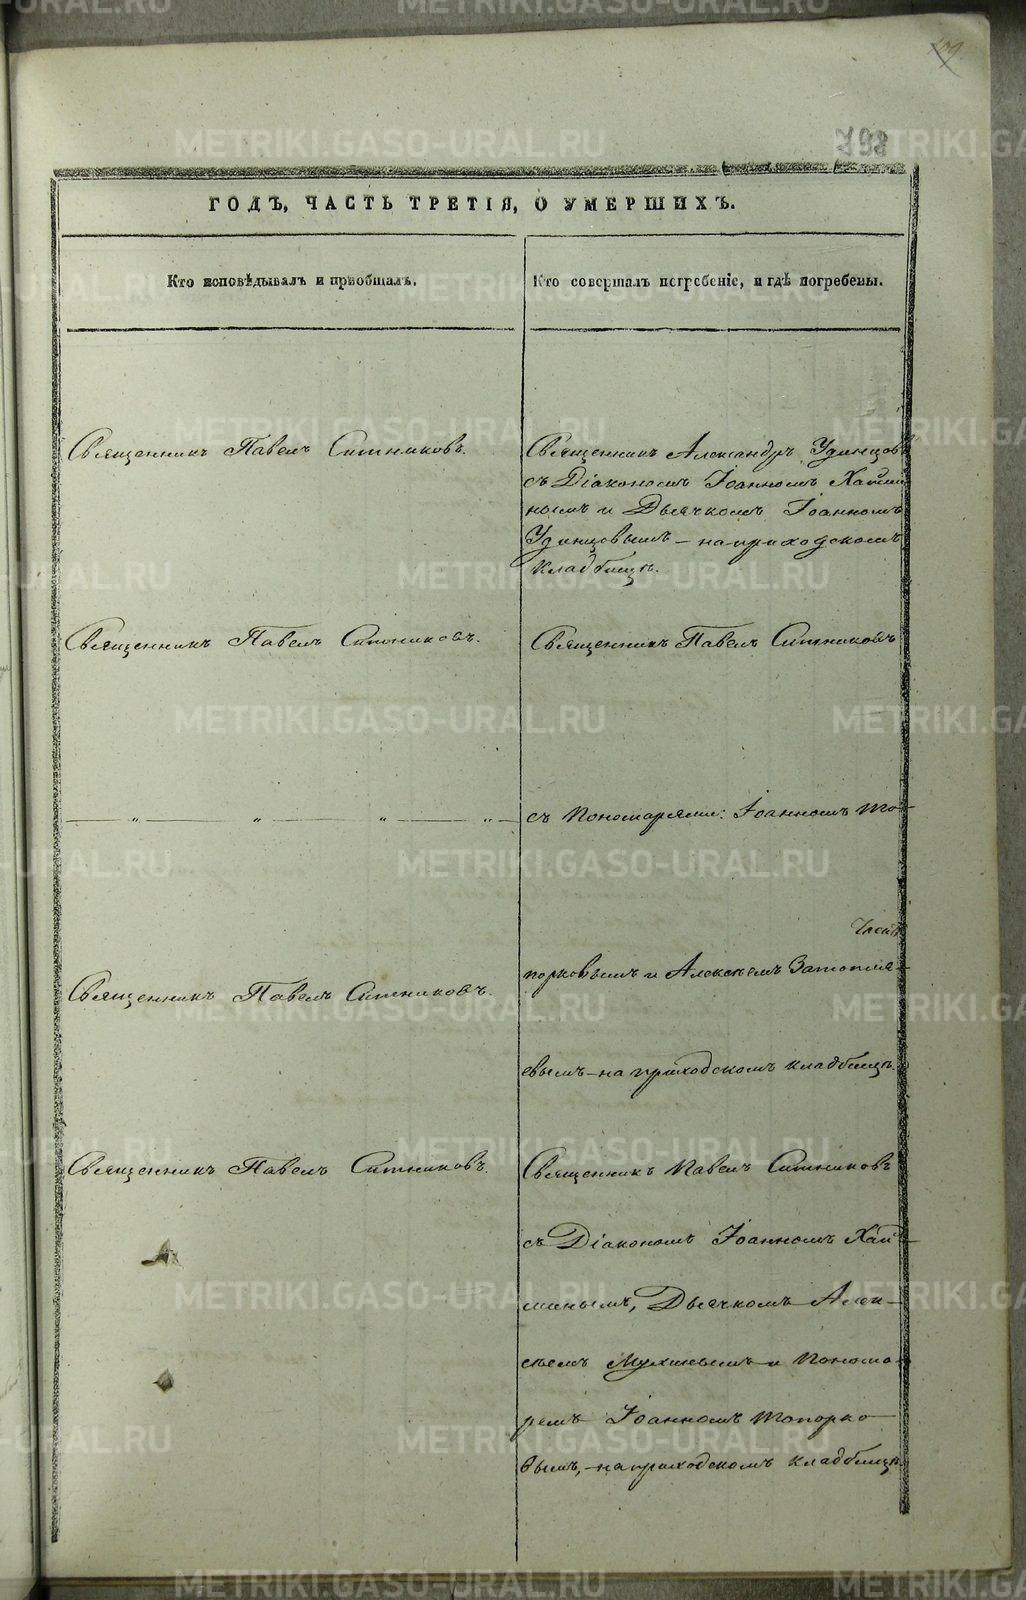 498
ГОДЪ, ЧАСТЬ ТРЕТІЯ, О УМЕРШИХЪ.
Кто исповѣдывалъ и пріобщалъ.
Кто совершалъ погребеніе, и гдѣ погребены.
Священникъ Павелъ Ситниковъ.
Священникъ Александръ Удинцовъ
съ Діакономъ Іоанномъ Хами
нымъ и Дьячкомъ Іоанномъ
Удинцовымъ – на приходскомъ
кладбищѣ.
Священникъ Павелъ Ситниковъ.
Священникъ Павелъ Ситниковъ
— „ — „ — „ — „ —
съ Пономарями: Іоанномъ То-
порковымъ и Алексѣемъ
Священникъ Павелъ Ситниковъ.
евымъ – на приходскомъ кладбищѣ.
Священникъ Павелъ Ситниковъ.
Священникъ Павелъ Ситниковъ
съ Діакономъ Іоанномъ
Дьячкомъ Алек-
сѣемъ Мухинымъ и Понома-
ремъ Іоанномъ Топорко-
вымъ, – на приходскомъ кладбищѣ.
METRIKI.GASO-URAL.RU